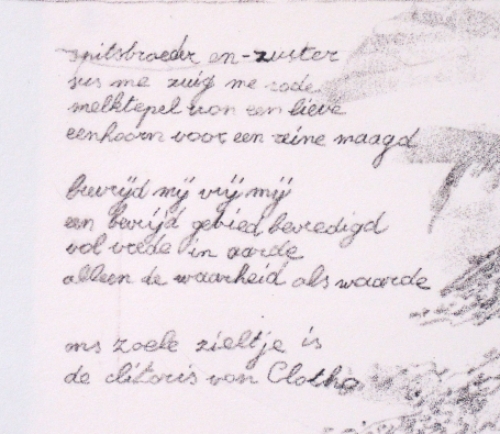 spitsbroeder en -zuster
sus me zuig me rode
melktepel van een lieve
eenhoorn voor een reine maagd
bevrijd mij vrij mij
een bevrijd gebied bevredigd
vol vrede in aarde
alleen de waarheid als waarde
ms zoele zieltje is
de clitoris van Clotho